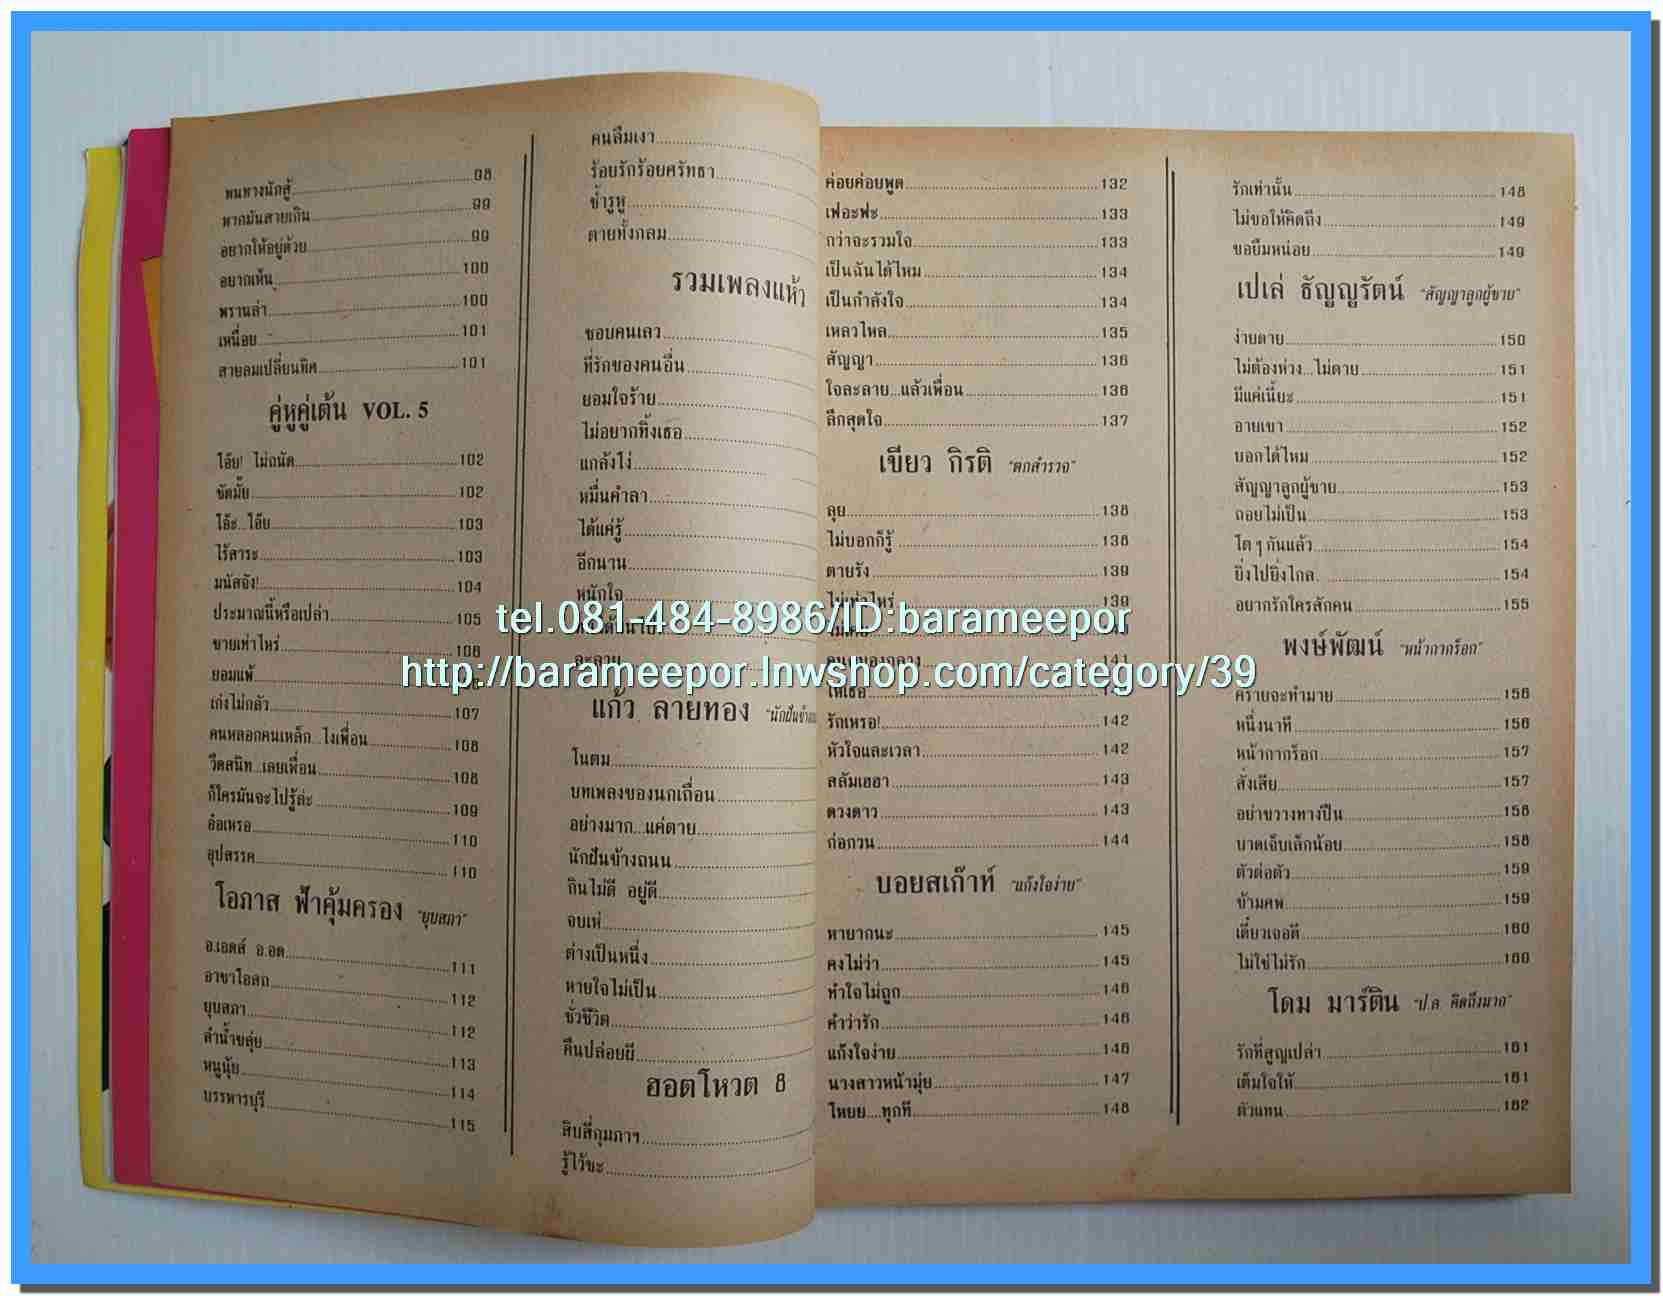 ทนทางนักสู้ 98
หากมันสายเกิน 99
อยากให้อยู่ด้วย 99
อยากเห็น 100
พรานล่า 100
เหนื่อย 101
สายลมเปลี่ยนทิศ 101
คู่หูคู่เต้น VOL. 5
โอ๊ย! ไม่ถนัด 102
ขัดมั้ย 102
โอ๊ะ...โอ๊ย 103
ไร้สาระ 103
มนัสจัง! 104
ประมาณนี้หรือเปล่า 105
ขายเท่าไหร่ 106
ยอมแพ้
เก่งไม่กลัว 107
คนหลอกคนเหล็ก...ไงเพื่อน 108
วีดสนิท...เลยเพื่อน 108
ก็ใครมันจะไปรู้ล่ะ 109
อ๋อเหรอ 110
อุปสรรค 110
โอภาส ฟ้าคุ้มครอง "ยุบสภา"
อ.เอดส์ อ.อด 111
อาชาโอสถ 112
ยุบสภา 112
ลำน้ำขลุ่ย 113
หนูนุ้ย 114
บรรหารบุรี 115
คนลืมเงา
ร้อยรักร้อยศรัทธา
ช้ำรูหู
ตายทั้งกลม
รวมเพลงแห้ว
ชอบคนเลว
ที่รักของคนอื่น
ยอมใจร้าย
ไม่อยากทิ้งเธอ
แกล้งโง่
หมื่นคำลา
ได้แค่รู้
อีกนาน
หนักใจ
ละลาย
แก้ว ลายทอง
โนตม
บทเพลงของนกเถื่อน
อย่างมาก...แค่ตาย
นักฝันข้างถนน
กินไม่ดี อยู่ดี
จบเห่
ต่างเป็นหนึ่ง
หายใจไม่เป็น
ชั่วชีวิต
คืนปล่อยผี
ฮอตโหวต 8
สิบสี่กุมภาฯ
รู้ไว้ซะ
ค่อยค่อยพูด 132
เฟอะฟะ 133
กว่าจะรวมใจ 133
เป็นฉันได้ไหม 134
เป็นกำลังใจ 134
เหลวไหล 135
สัญญา 136
ใจละลาย...แล้วเพื่อน 136
ลึกสุดใจ 137
เขียว กิรติ "ตกสำรวจ"
ลุย 138
ไม่บอกก็รู้ 138
ตายรัง 139
ไม่เท่าไหร่ 139
141
ให้เธอ
รักเหรอ! 142
หัวใจและเวลา 142
สลัมเฮฮา 143
ดวงดาว 143
ก่อกวน 144
บอยสเก๊าท์ "แก้งใจง่าย"
หายากนะ 145
คงไม่ว่า 145
ทำใจไม่ถูก 146
คำว่ารัก 146
แก๊งใจง่าย 146
นางสาวหน้ามุ่ย 147
โหยย....ทุกที 148
รักเท่านั้น 148
ไม่ขอให้คิดถึง 149
ขอยืมหน่อย 149
เปเล่ ธัญญรัตน์ "สัญญาลูกผู้ชาย"
ง่ายดาย 150
ไม่ต้องห่วง...ไม่ตาย 151
มีแค่เนี้ยะ 151
อายเขา 152
บอกได้ไหม 152
สัญญาลูกผู้ชาย 153
ถอยไม่เป็น 153
โต ๆ กันแล้ว 154
ยิ่งไปยิ่งไกล 154
อยากรักใครสักคน 155
พงษ์พัฒน์ "หน้ากากร็อก"
คราบจะทำมาย 156
หนึ่งนาที 156
หน้ากากร็อก 157
สั่งเสีย 157
อย่าขวางทางปืน 158
บาดเจ็บเล็กน้อย 158
ตัวต่อตัว 159
ข้ามศพ 159
เดี๋ยวเจอดี 160
ไม่ใช่ไม่รัก 160
โดม มาร์ติน "ป.ล. คิดถึงมาก"
รักที่สูญเปล่า 161
เต็มใจให้ 161
ตัวแทน 162
tel.081-484-8986/ID:barameepor
http://barameepor.lnwshop.com/category/39